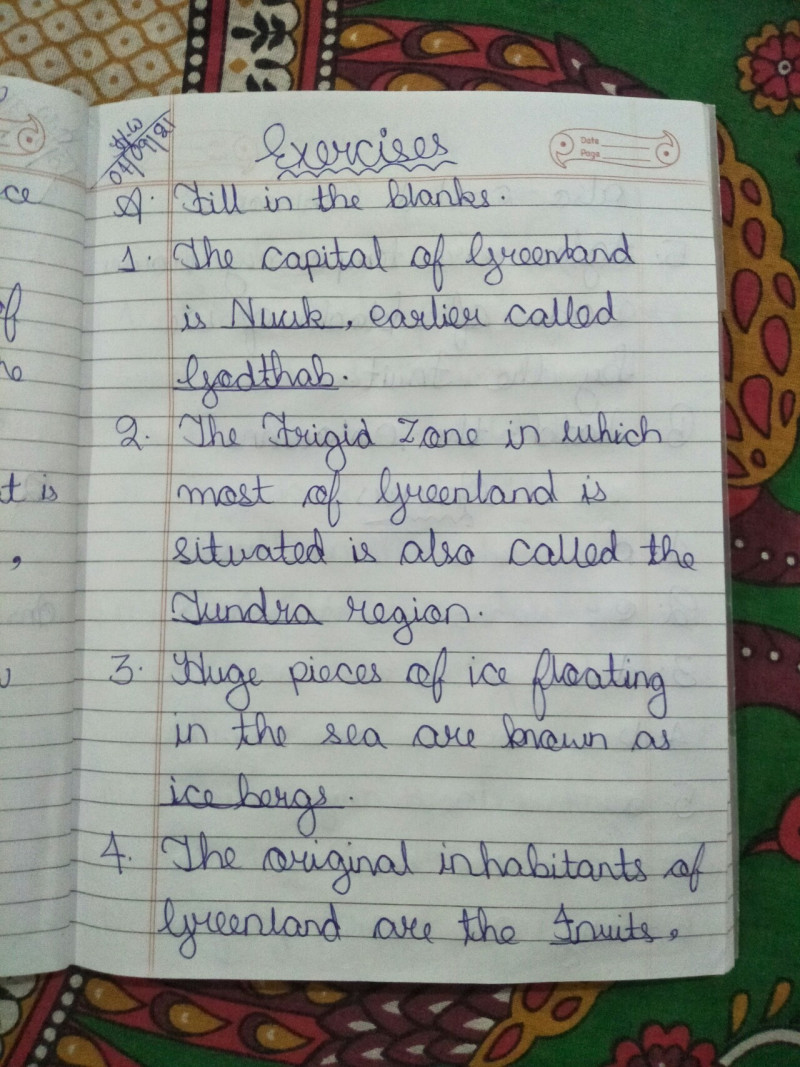 H.W
04/09/21
Exercises
Date
Page
A. Fill in the blanks.
1. The capital of Greenland
is Nuuk, earlier called
Godthab.
2. The Frigid Zone in which
most of Greenland is
situated is also called the
Tundra region.
3. Huge pieces of ice floating
in the sea are known as
ice bergs.
4. The original inhabitants of
Greenland are the Inuits,
ce
of
t is
,